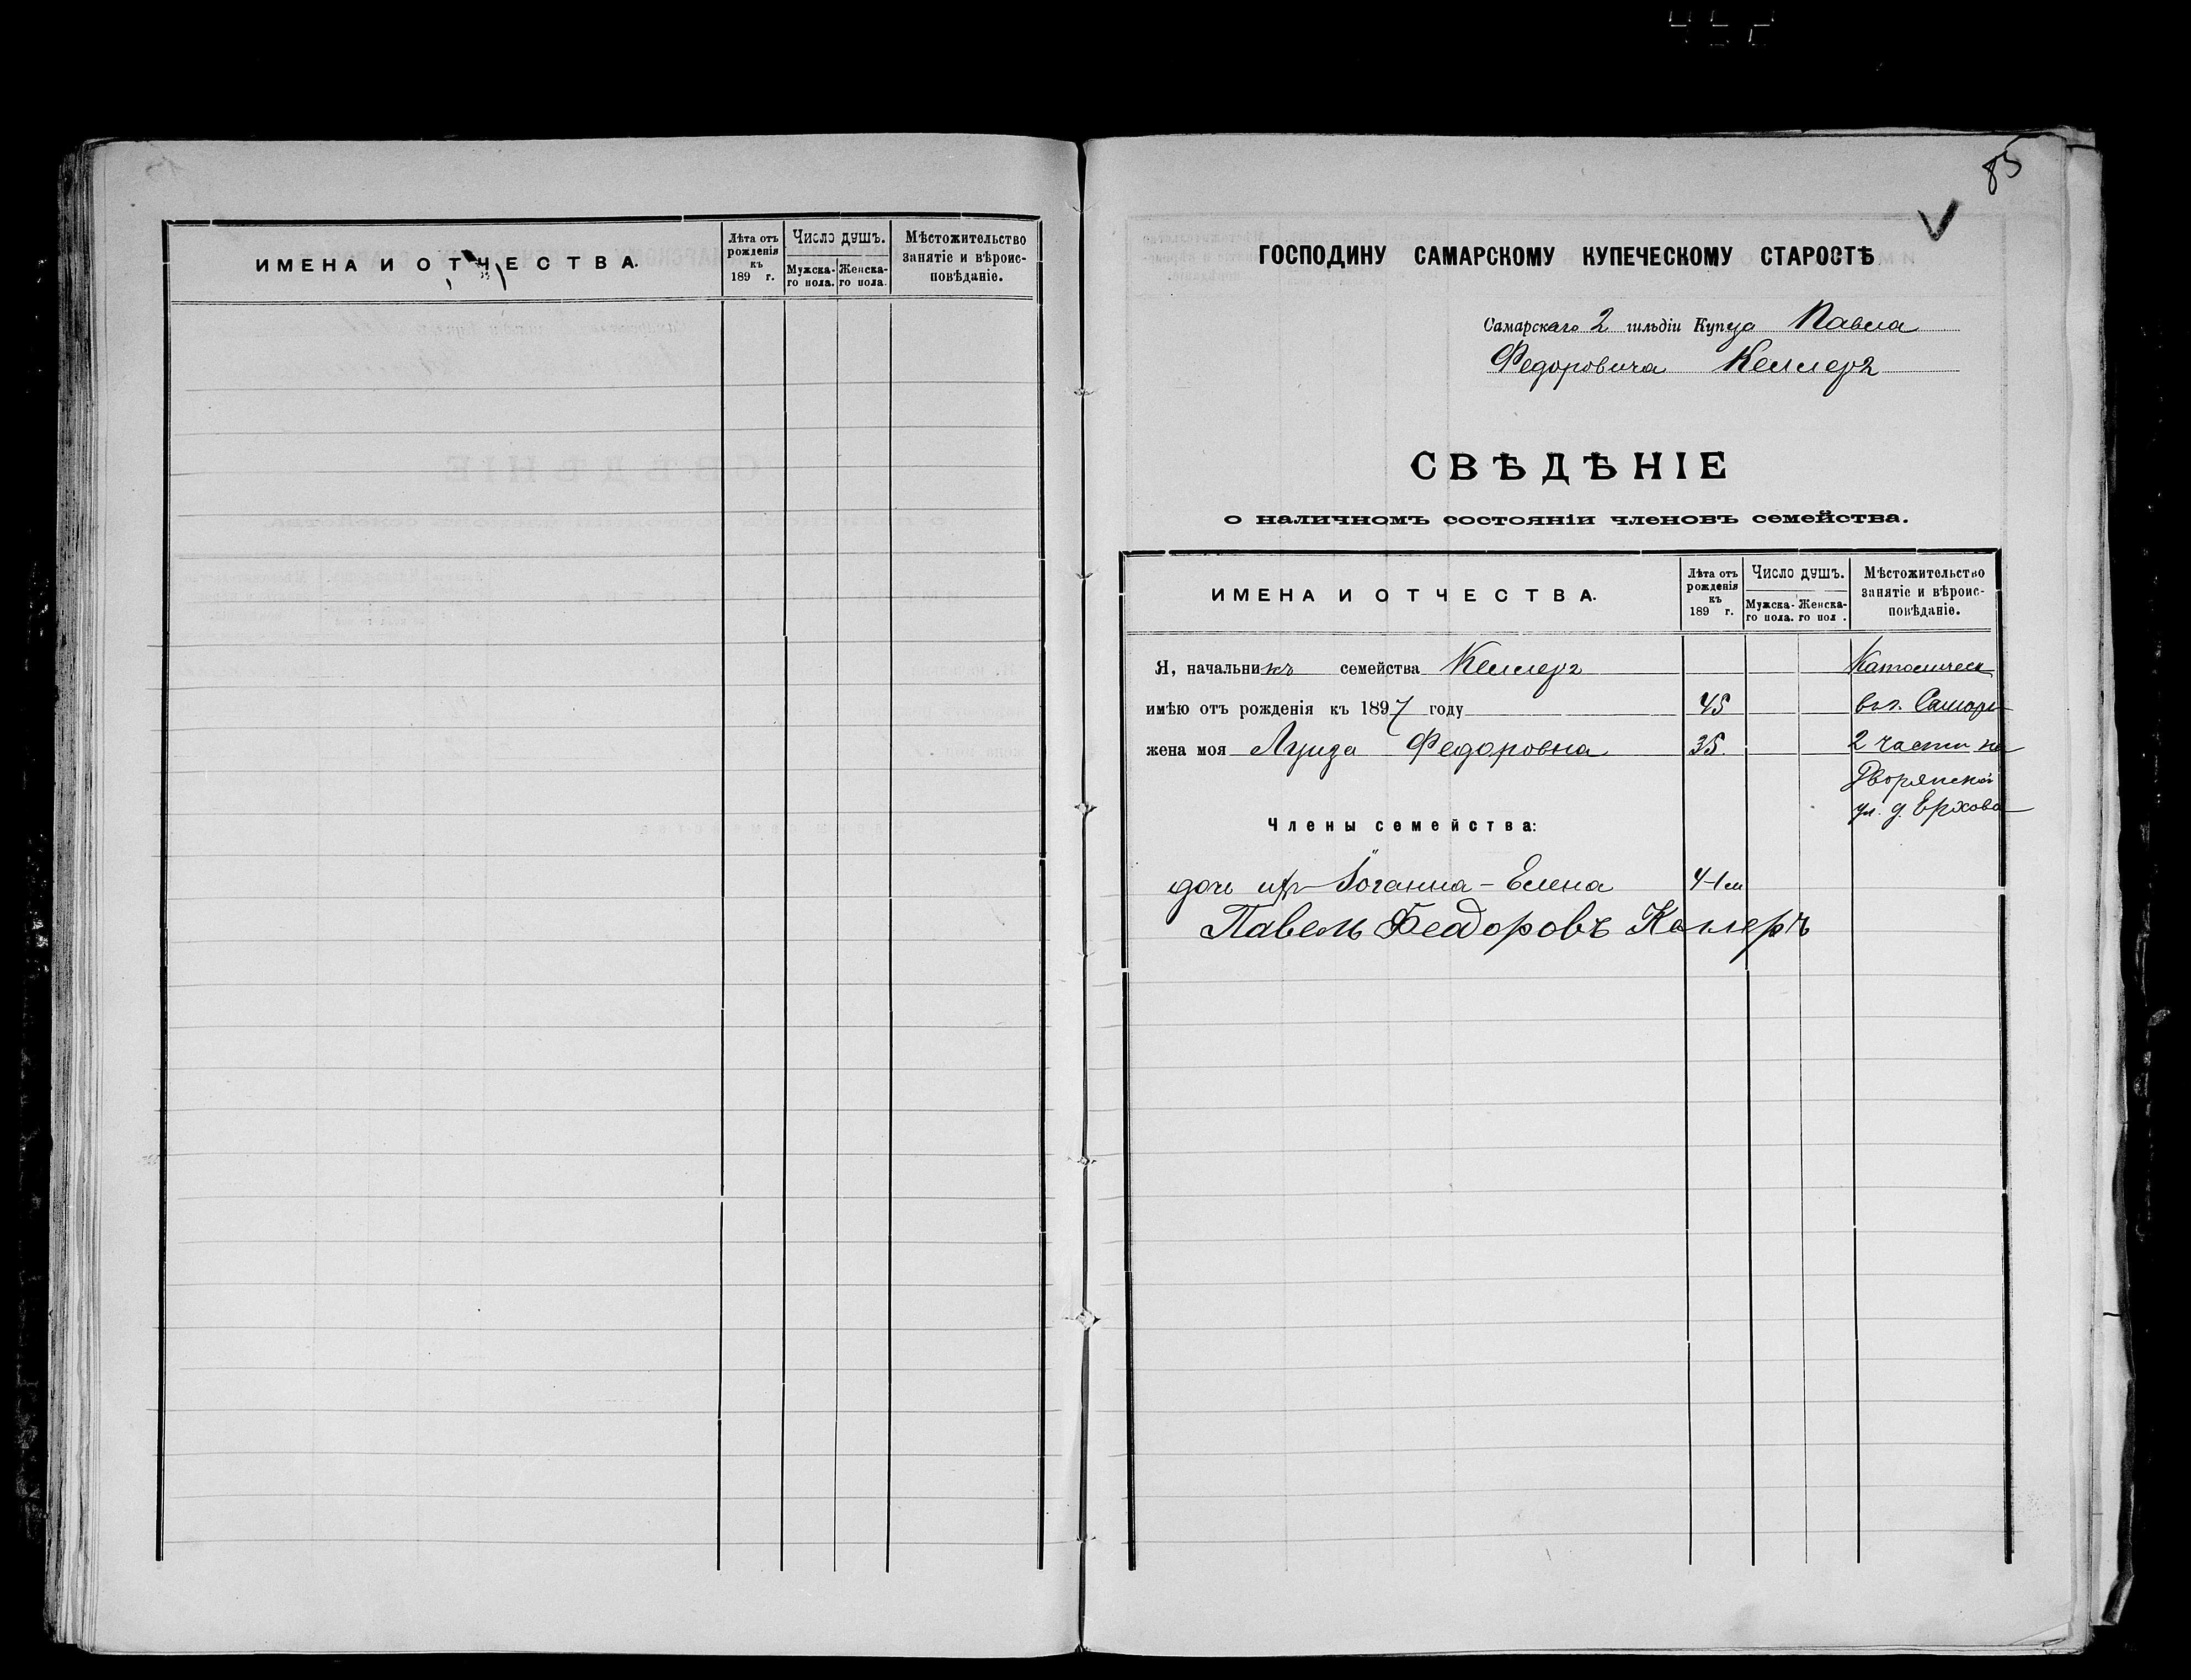 ИМЕНА И ОТЧЕСТВА.
Лѣта отъ рожденія къ 189 г.
Число душъ.
Мужска-го пола.
Женска-го пола.
Мѣстожительство занятіе и вѣроис-повѣданіе.
85
ГОСПОДИНУ САМАРСКОМУ КУПЕЧЕСКОМУ СТАРОСТѢ
Самарскаго 2 гильдіи Купца Павла
Федоровича Келлеръ
СВѢДѢНІЕ
о наличномъ состояніи членовъ семейства.
ИМЕНА И ОТЧЕСТВА.
Лѣта отъ рожденія къ 189 г.
Число душъ.
Мужска-го пола.
Женска-го пол .
Мѣстожительство занятіе и вѣроис-повѣданіе.
Я, начальникъ семейства Келлеръ Католическ
имѣю отъ рожденія къ 1897 году 45 въ г. Самарѣ
жена моя Луиза Федоровна 35. 2 части на
Дворянской
ул. д. Ерхова
Члены семейства:
дочь ихъ Іоганна-Елена
Павелъ Феодоровъ Келлеръ